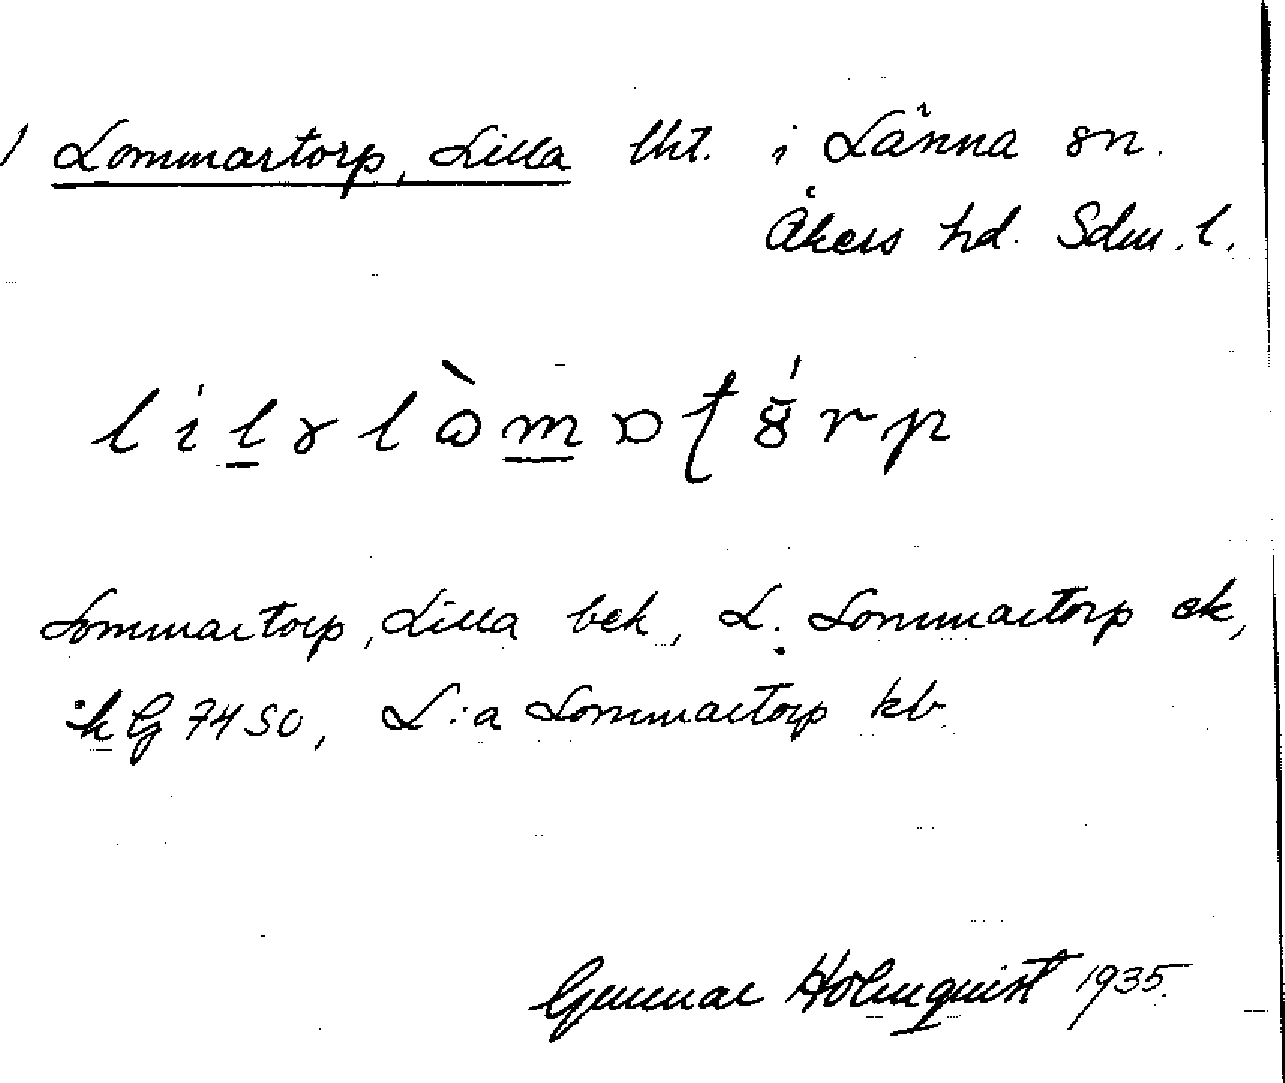 Lommartorp, Lilla lht. i Länna sn.
Åkers hd. Sdm. l.
lilɤlòmɒʈɞ́rp
Lommartorp, Lilla bek, L. Lommartorp ek,
jk G 7450, L:a Lommartorp kb
Gunnar Holmquist 1935.